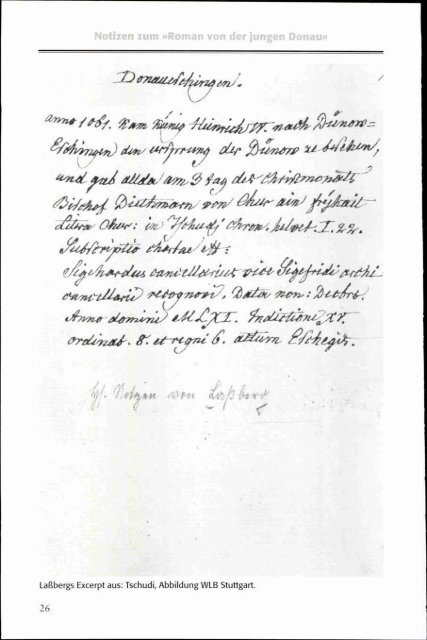 Notizen zum »Roman von der jungen Donau«
Donaueschingen.
anno 1061. kam künig Heinrich IV. nach Dünow=
Eschingen den ursprung der Dünow ze besehen,
und gab allda am 3 tag des Christmonats
Bischof Diethmarn von Chur ain fryhait
Litera Chur: in Tschudj Chron. helvet. I. 22.
Subscriptio chartae est:
Sigehardus cancellarius vice Sigefridi archi
cancellarii recognovi. Data non: Decbrs.
Anno domini MLXI. Indictione XV.
ordinat. 8. et regni 6. actum Eschegis.
Hs. Notizen von Laßberg
Laßbergs Excerpt aus: Tschudi, Abbildung WLB Stuttgart.
26